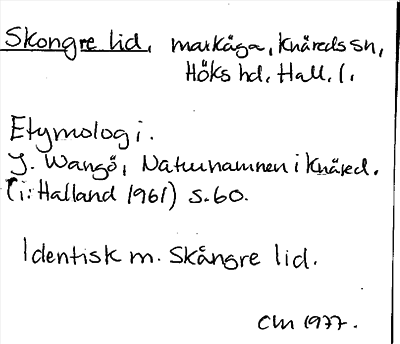 Skongre lid, markäga, Knäreds sn,
Höks hd, Hall. l.
Etymologi.
J. Wangö, Naturnamnen i Knäred.
(i: Halland 1961) s. 60.
Identisk m. Skångre lid.
CM 1977.